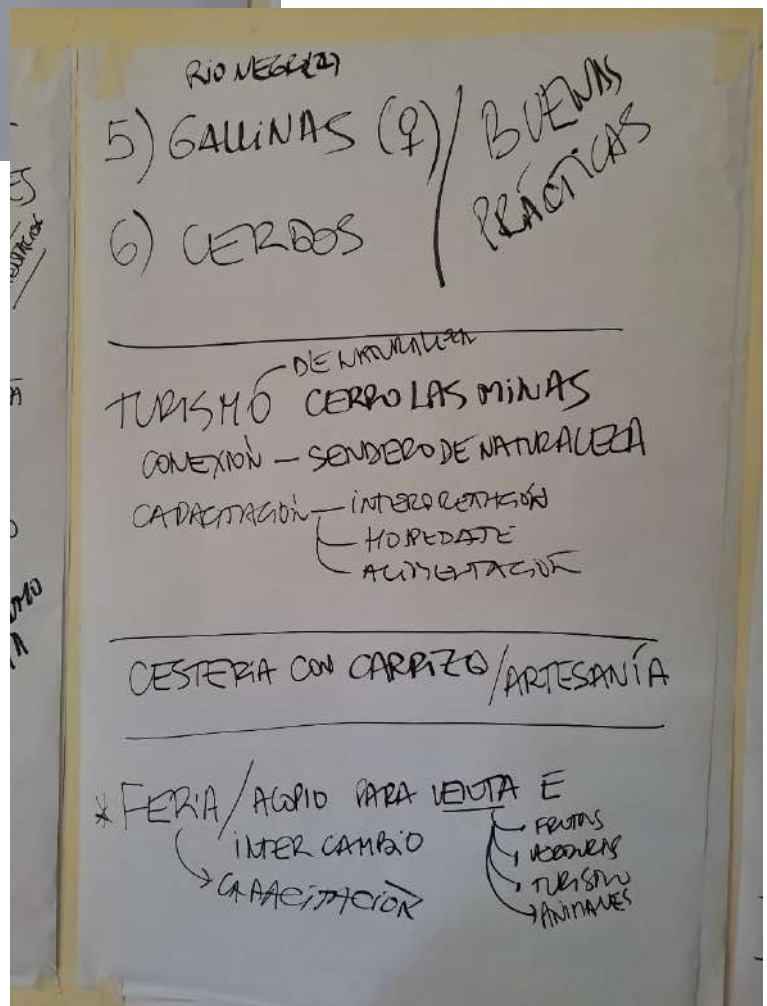 RIO NEGRO (2)
5) GALLINAS (♀) / BUENAS PRÁCTICAS
6) CERDOS
DE NATURALEZA
TURISMO CERRO LAS MINAS
CONEXIÓN – SENDERO DE NATURALEZA
CAPACITACIÓN – INTERPRETACIÓN
– HOPEDATE
– ALIMENTACIÓN
CESTERIA CON CARRIZO / ARTESANÍA
* FERIA / ACOPIO PARA VENTA E
INTERCAMBIO
→ CAPACITACIÓN
FRUTAS
VERDURAS
TURISMO
ANIMALES